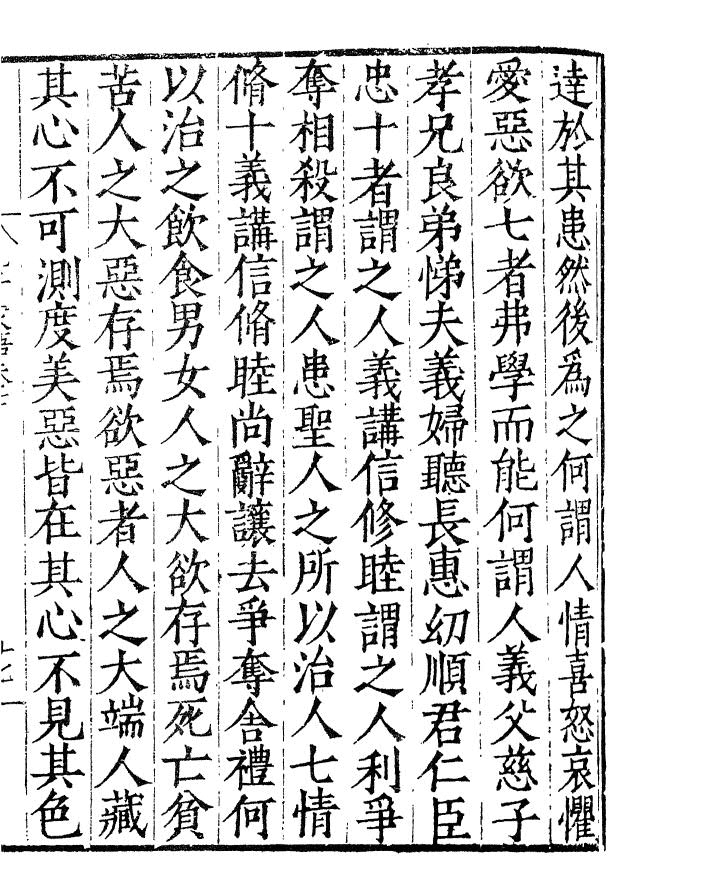 達於其患然後爲之何謂人情喜怒哀懼
愛惡欲七者弗學而能何謂人義父慈子
孝兄良弟悌夫義婦聽長惠幼順君仁臣
忠十者謂之人義講信修睦謂之人利爭
奪相殺謂之人患聖人之所以治人七情
脩十義講信脩睦尚辭讓去爭奪舍禮何
以治之飲食男女人之大欲存焉死亡貧
苦人之大惡存焉欲惡者人之大端人藏
其心不可測度美惡皆在其心不見其色